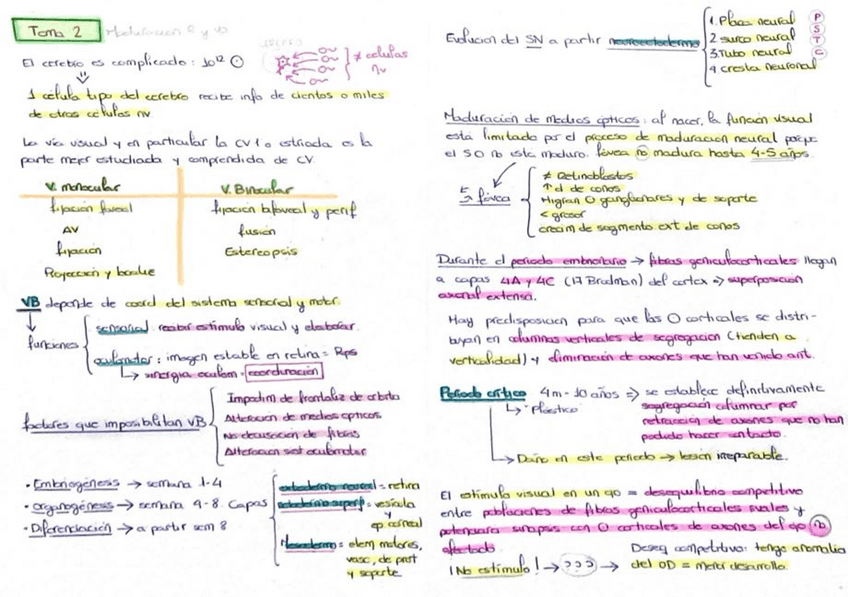 Tema 2 Maduración
El cerebro es complicado: 10¹²
≠ células
nv
1 célula tipo del cerebro recibe info de cientos o miles
de otras células nv
La vía visual y en particular la CV1 o estriada es la
parte mejor estudiada y comprendida de CV.
V. monocular V. Binocular
fijación foveal fijación bifoveal y perif
AV fusión
fijación Estereopsis
Proyección y barrido
VB depende de coord del sistema sensorial y motor.
funciones
sensorial recibir estímulo visual y elaborar.
oculomotor: imagen estable en retina =
sinergia oculom = coordinación
factores que imposibilitan VB
Impedim de frontaliz de orbita
Alteración de medios ópticos
No decusación de fibras
Alteración sist oculomotor
• Embriogénesis → semana 1-4
• Organogénesis → semana 4-8 Capas
• Diferenciación → a partir sem 8
ectodermo neural = retina
ectodermo superf = vesícula
y
ep corneal
Mesodermo = elem motores,
vasc, de prot
y soporte
Evolución del SN a partir neuroectodermo
1. Placa neural P
2 surco neural S
3. Tubo neural T
4 cresta neuronal C
Maduración de medios ópticos: al nacer, la función visual
está limitada por el proceso de maduración neural porque
el SO no esta maduro. fóvea no madura hasta 4-5 años.
fóvea
≠ Retinoblastos
↑ d de conos
Migran O ganglionares y de soporte
< grosor
crecim de segmento ext de conos
Durante el periodo embrionario → fibras geniculocorticales llegan
a capas 4A y 4C (17 Brodman) del cortex → superposición
axonal extensa.
Hay predisposición para que las O corticales se distri-
buyan en columnas verticales de segregación (tienden a
verticalidad) y eliminación de axones que tan venido ant.
Periodo crítico 4m - 10 años => se establece definitivamente
"Plástico" segregación columnar por
retracción de axones que no han
podido hacer contacto.
Daño en este periodo → lesión irreparable.
El estímulo visual en un ojo = desequilibrio competitivo
entre poblaciones de fibras geniculocorticales rivales y
potenciara sinapsis con O corticales de axones del ojo no
afectado. Deseq competitivo: tengo anomalía
! No estímulo! → ??? → del OD = menor desarrollo.